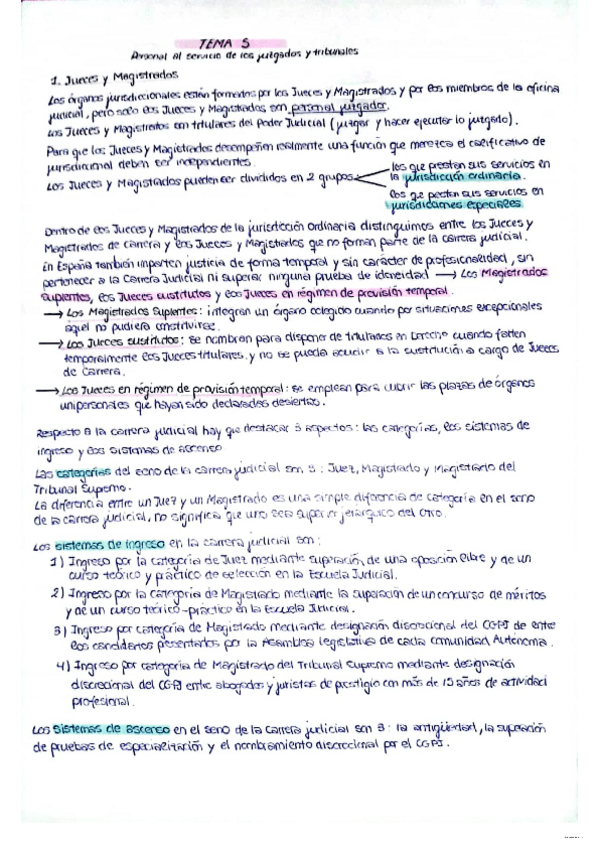 TEMA 5
Personal al servicio de los juzgados y tribunales
1. Jueces y Magistrados
Los órganos jurisdiccionales están formados por los Jueces y Magistrados y por los miembros de la oficina
judicial, pero solo los Jueces y Magistrados son personal juzgador.
Los Jueces y Magistrados son titulares del Poder Judicial (juzgar y hacer ejecutar lo juzgado).
Para que los Jueces y Magistrados desempeñen realmente una función que merezca el calificativo de
jurisdiccional deben ser independientes.
Los Jueces y Magistrados pueden ser divididos en 2 grupos
los que prestan sus servicios en
la jurisdicción ordinaria.
los que prestan sus servicios en
jurisdicciones especiales.
Dentro de los Jueces y Magistrados de la jurisdicción ordinaria distinguimos entre los Jueces y
Magistrados de carrera y los Jueces y Magistrados que no forman parte de la carrera judicial.
En España también imparten justicia de forma temporal y sin carácter de profesionalidad, sin
pertenecer a la Carrera Judicial ni superar ninguna prueba de idoneidad → Los Magistrados
suplentes, los Jueces sustitutos y los Jueces en régimen de provisión temporal.
→ Los Magistrados Suplentes: integran un órgano colegido cuando por situaciones excepcionales
aquel no pudiera constituirse.
→ Los Jueces sustitutos: se nombran para disponer de titulados en Derecho cuando falten
temporalmente los Jueces titulares, y no se pueda acudir a la sustitución a cargo de Jueces
de Carrera.
→ Los Jueces en régimen de provisión temporal: se emplean para cubrir las plazas de órganos
unipersonales que hayan sido declaradas desiertas.
Respecto a la carrera judicial hay que destacar 3 aspectos: las categorías, los sistemas de
ingreso y los sistemas de ascenso.
Las categorías del seno de la carrera judicial son 3: Juez, Magistrado y Magistrado del
Tribunal Supremo.
La diferencia entre un Juez y un Magistrado es una simple diferencia de categoría en el seno
de la carrera judicial, no significa que uno sea superior jerárquico del otro.
Los sistemas de ingreso en la carrera judicial son:
1) Ingreso por la categoría de Juez mediante superación, de una oposición libre y de un
curso teórico y práctico de selección en la Escuela Judicial.
2) Ingreso por la categoría de Magistrado mediante la superación de un concurso de méritos
y de un curso teórico-práctico en la Escuela Judicial.
3) Ingreso por categoría de Magistrado mediante designación discrecional del CGPJ de entre
los candidatos presentados por la Asamblea legislativa de cada comunidad Autónoma.
4) Ingreso por categoría de Magistrado del Tribunal Supremo mediante designación
discrecional del CGPJ entre abogados y juristas de prestigio con más de 15 años de actividad
profesional.
Los sistemas de ascenso en el seno de la carrera judicial son 3: la antigüedad, la superación
de pruebas de especialización y el nombramiento discrecional por el CGPJ.